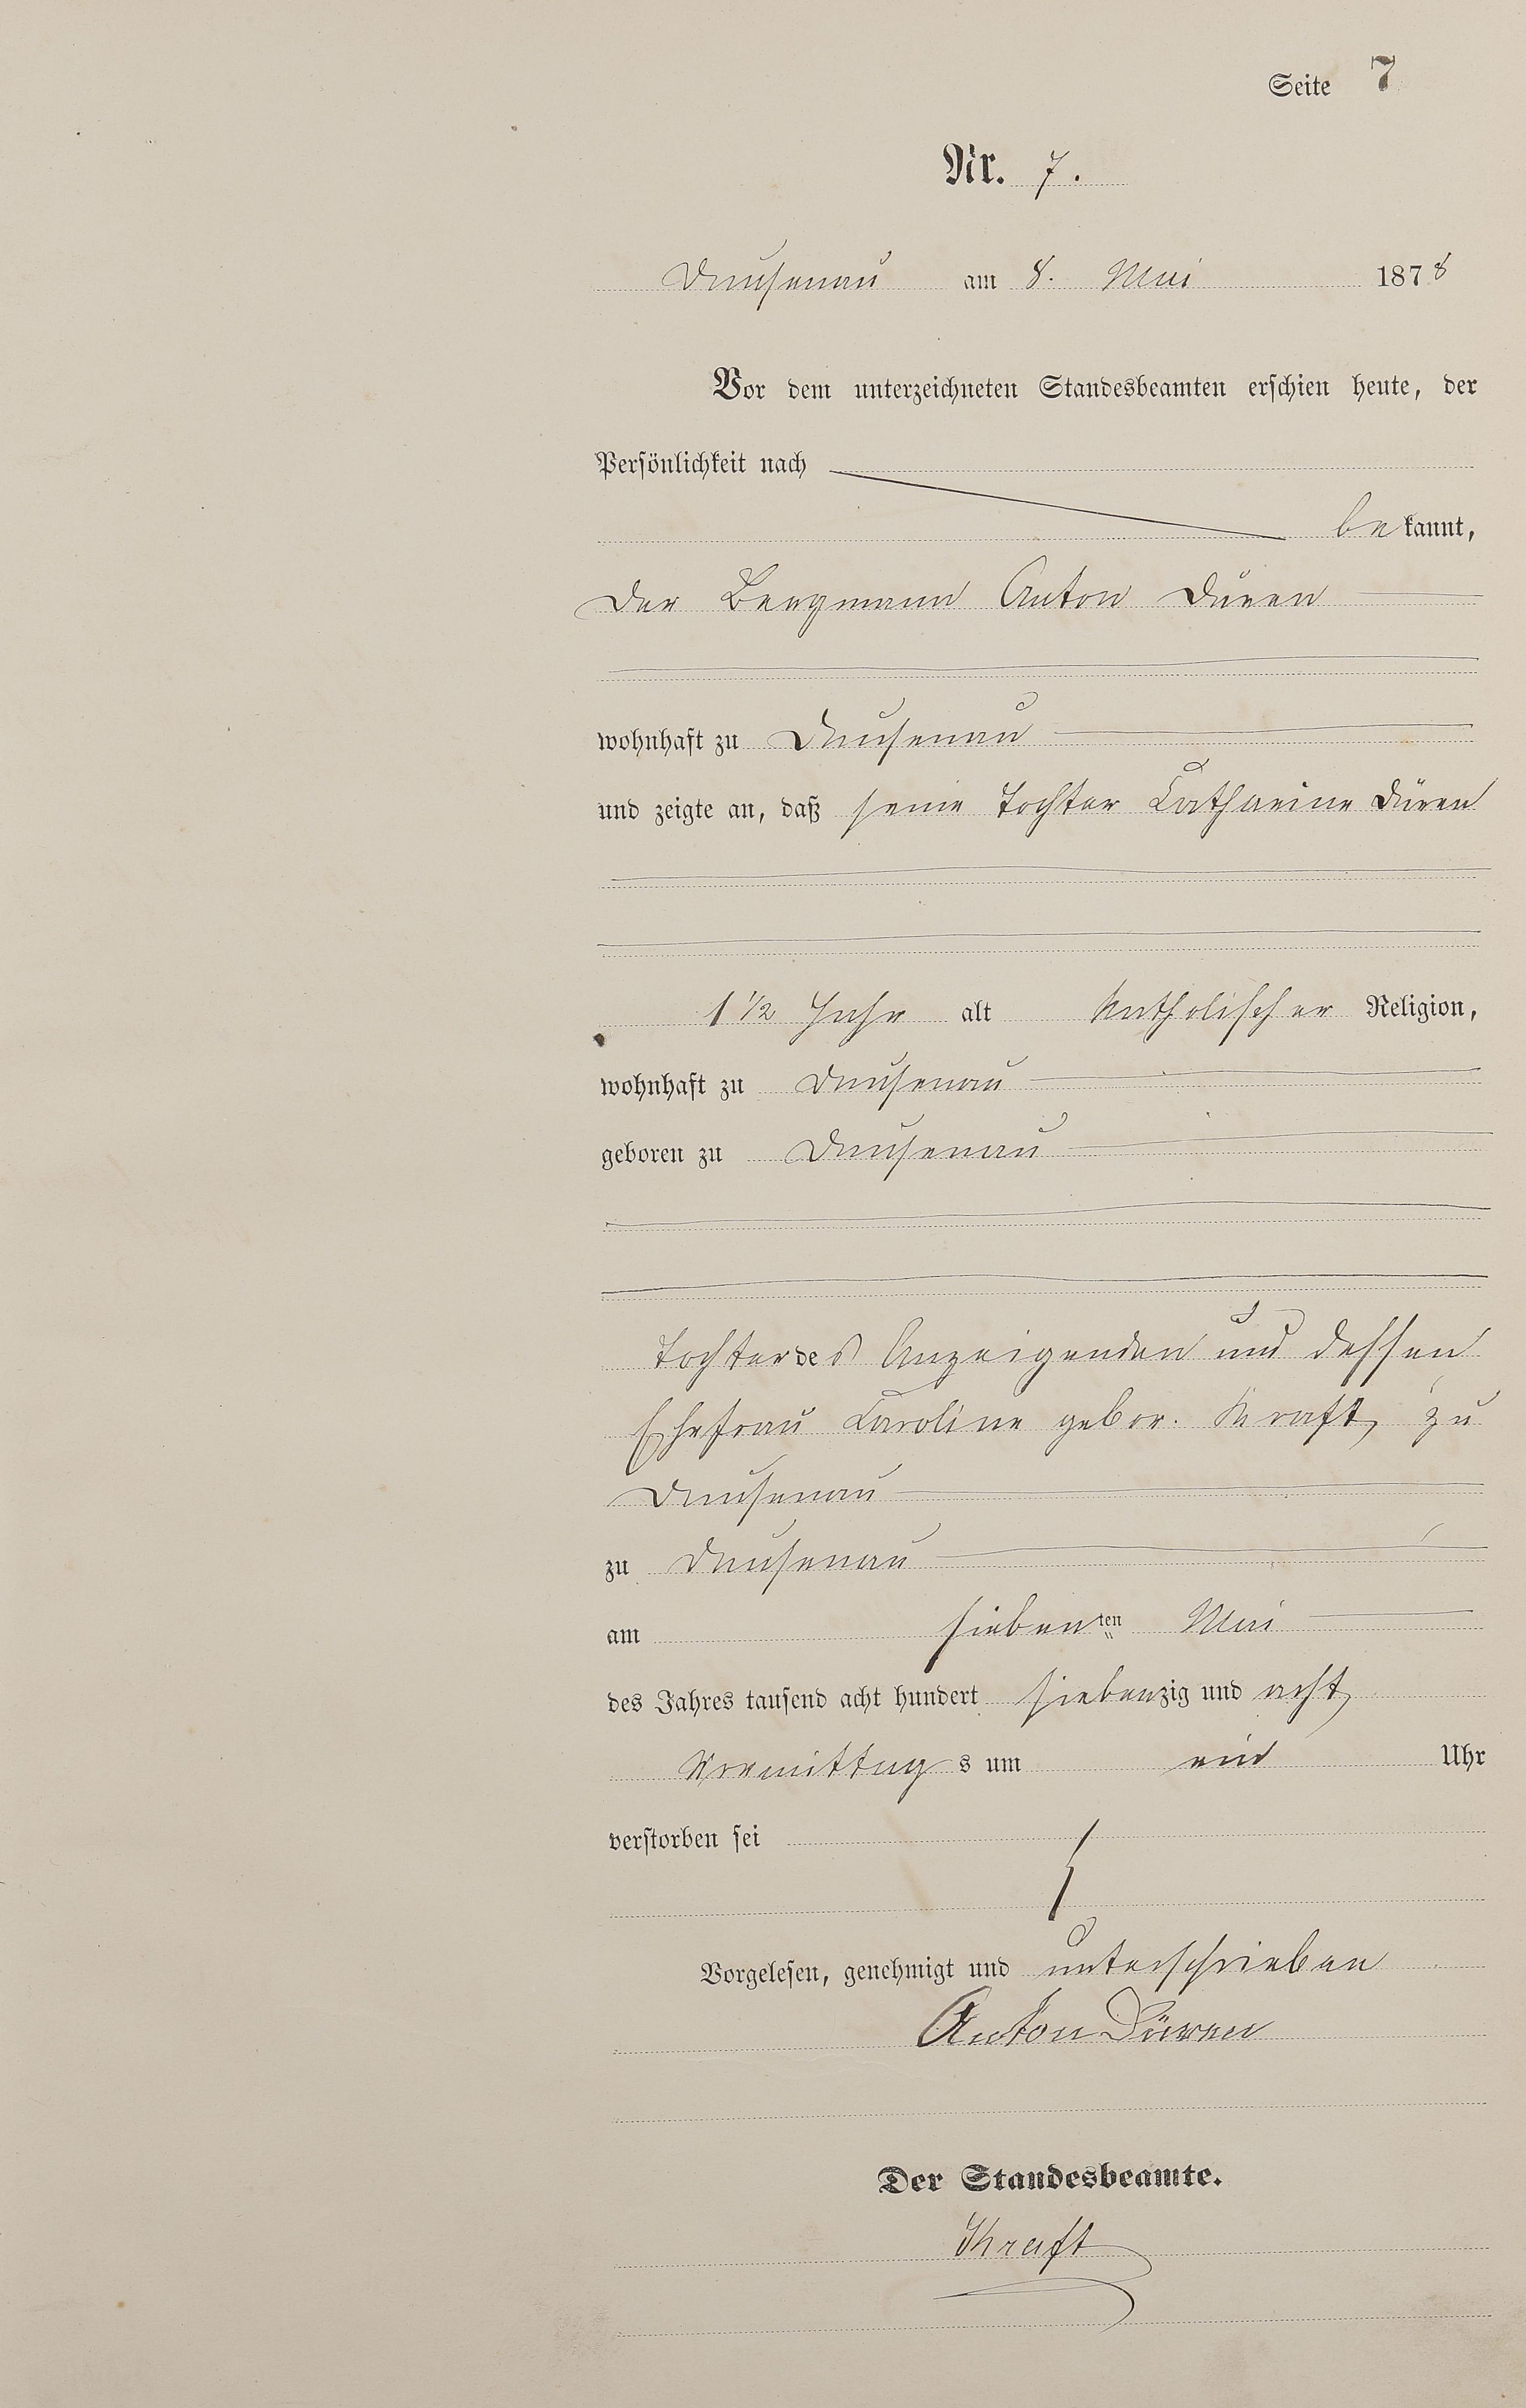 Seite 7
Nr. 7.
Dausenau am 8. Mai 1878
Vor dem unterzeichneten Standesbeamten erschien heute, der
Persönlichkeit nach
bekannt,
der Bergmann Anton Düren
wohnhaft zu Dausenau
und zeigte an, daß seine Tochter Catharine Düren
1 1/2 Jahr alt katholischer Religion,
wohnhaft zu Dausenau
geboren zu Dausenau
Tochter des Anzeigenden und dessen
Ehefrau Caroline gebor. Kraft, zu
Dausenau
zu Dausenau
am siebenten Mai
des Jahres tausend acht hundert siebenzig und acht
Vormittags um ein Uhr
verstorben sei
Vorgelesen, genehmigt und unterschrieben
Anton Düren
Der Standesbeamte.
Kraft